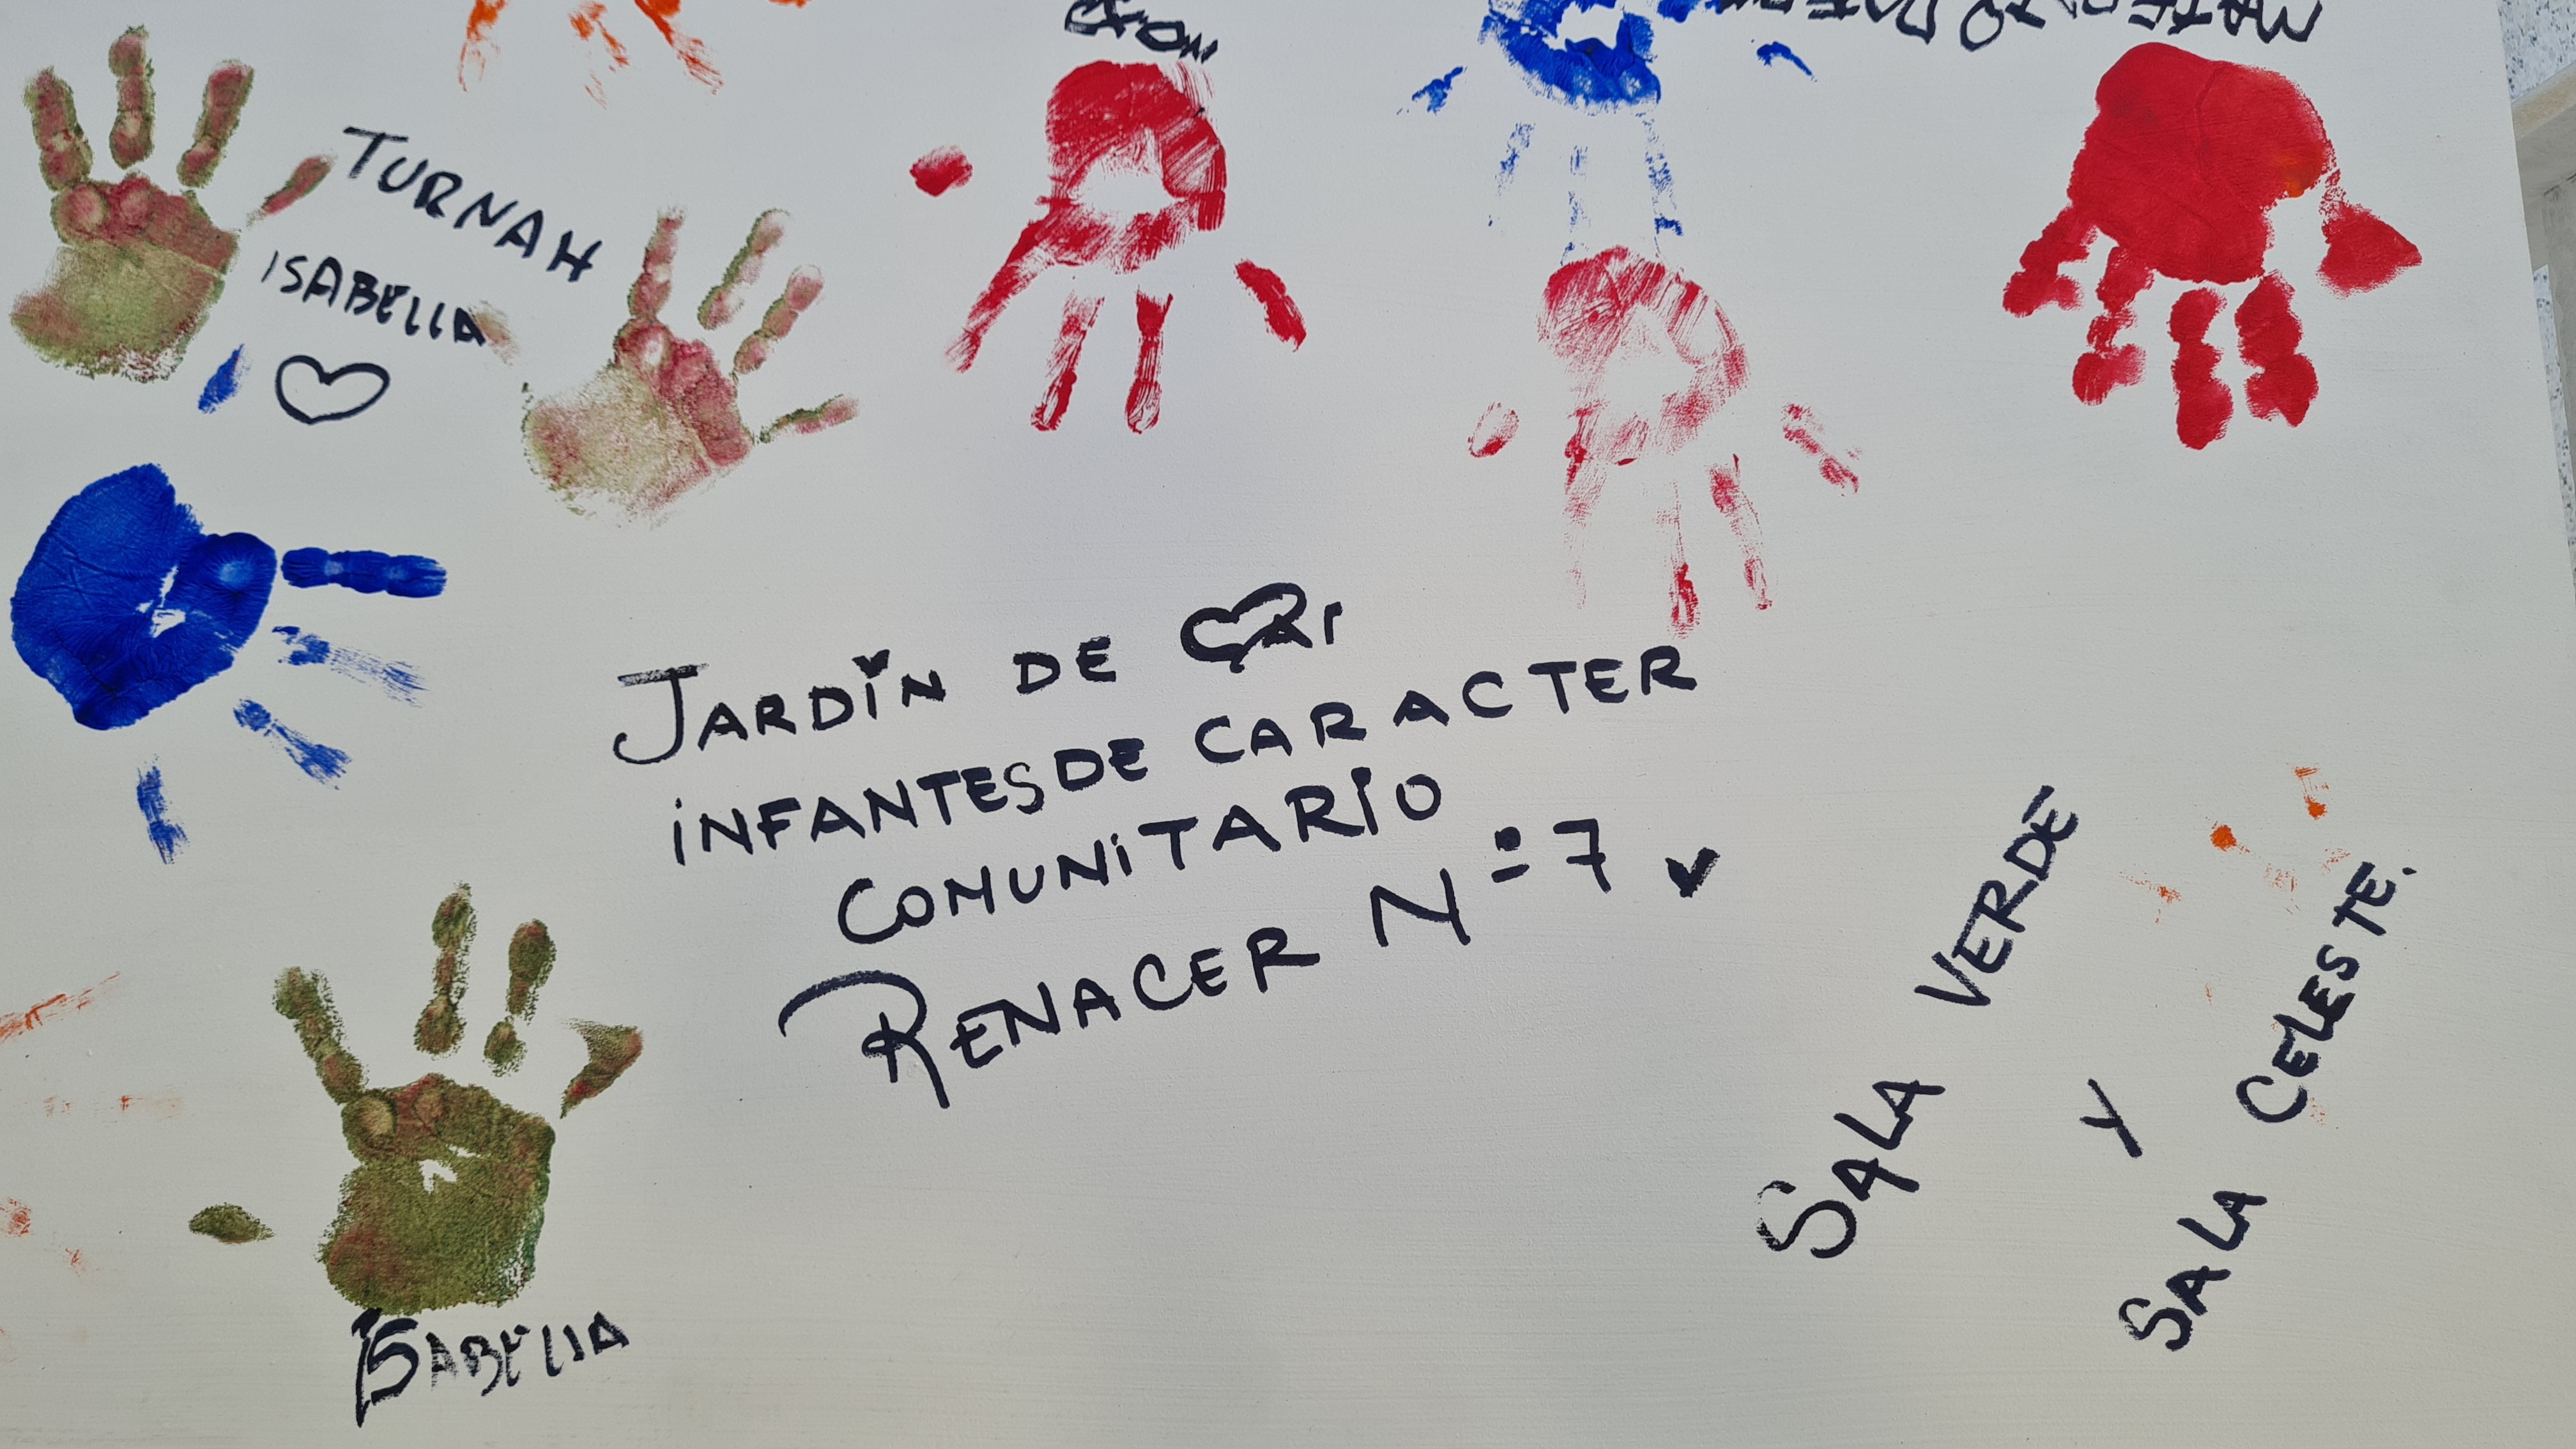 TURNAH
ISABELLA
JARDIN DE
INFANTES DE CARACTER
COMUNITARIO
RENACER Nº 7
SALA VERDE
Y
SALA CELESTE.
ISABELLA